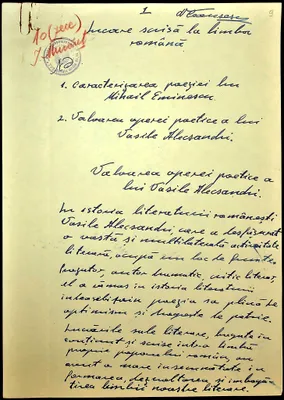 1
10 (zece)
Lucrare scrisă la limba
română
1. Caracterizarea poeziei lui
Mihail Eminescu.
2. Valoarea operei poetice a lui
Vasile Alecsandri.
Valoarea operei poetice a
lui Vasile Alecsandri.
In istoria literaturii românești
Vasile Alecsandri, care a desfășurat
o vastă și multilaterală activitate
literară, ocupă un loc de frunte.
Prozator, autor dramatic, critic literar,
el a rămas în istoria literaturii
îndeosebi prin poezia sa plină de
optimism și dragoste de patrie.
Lucrările sale literare, bogate în
conținut și scrise într-o limbă
proprie poporului român, au
avut o mare însemnătate în
formarea, dezvoltarea și îmbogă-
țirea limbii noastre literare.